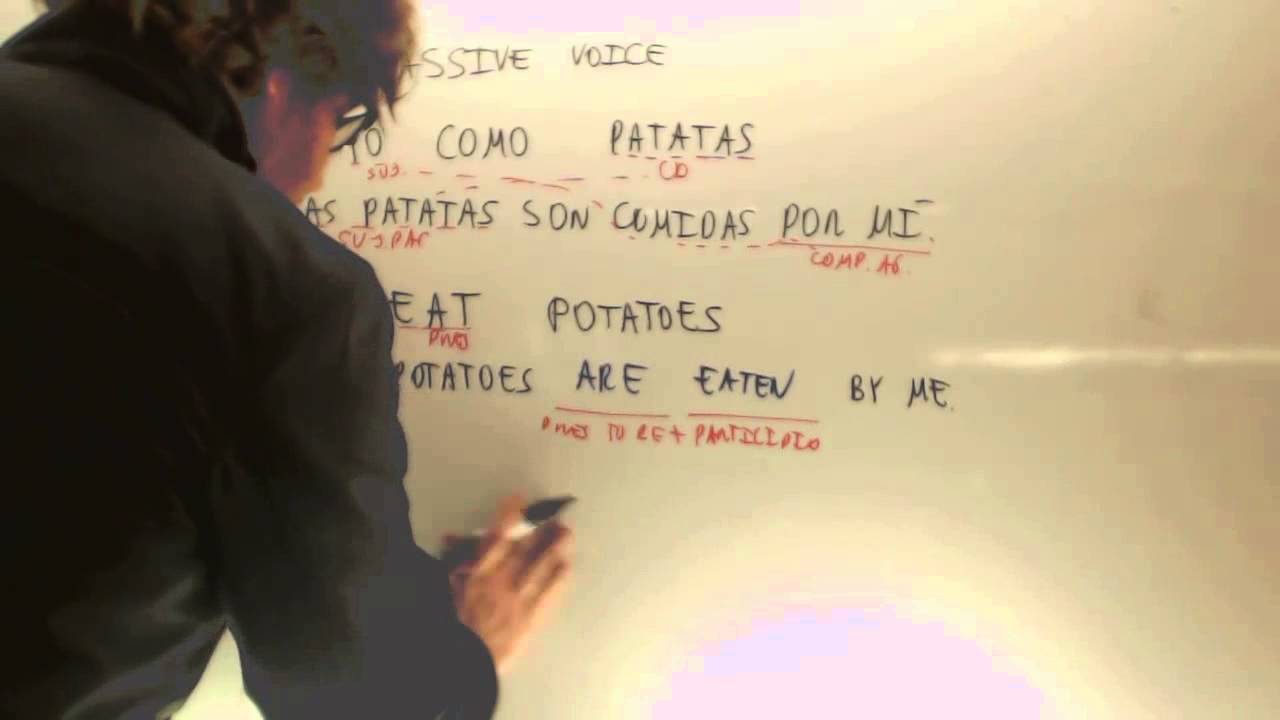 ASSIVE VOICE
YO COMO PATATAS
SUJ. CD
AS PATATAS SON COMIDAS POR MÍ.
SUJ.PAC COMP. AG.
EAT POTATOES
PRES
POTATOES ARE EATEN BY ME.
PRES TO BE + PARTICIPIO